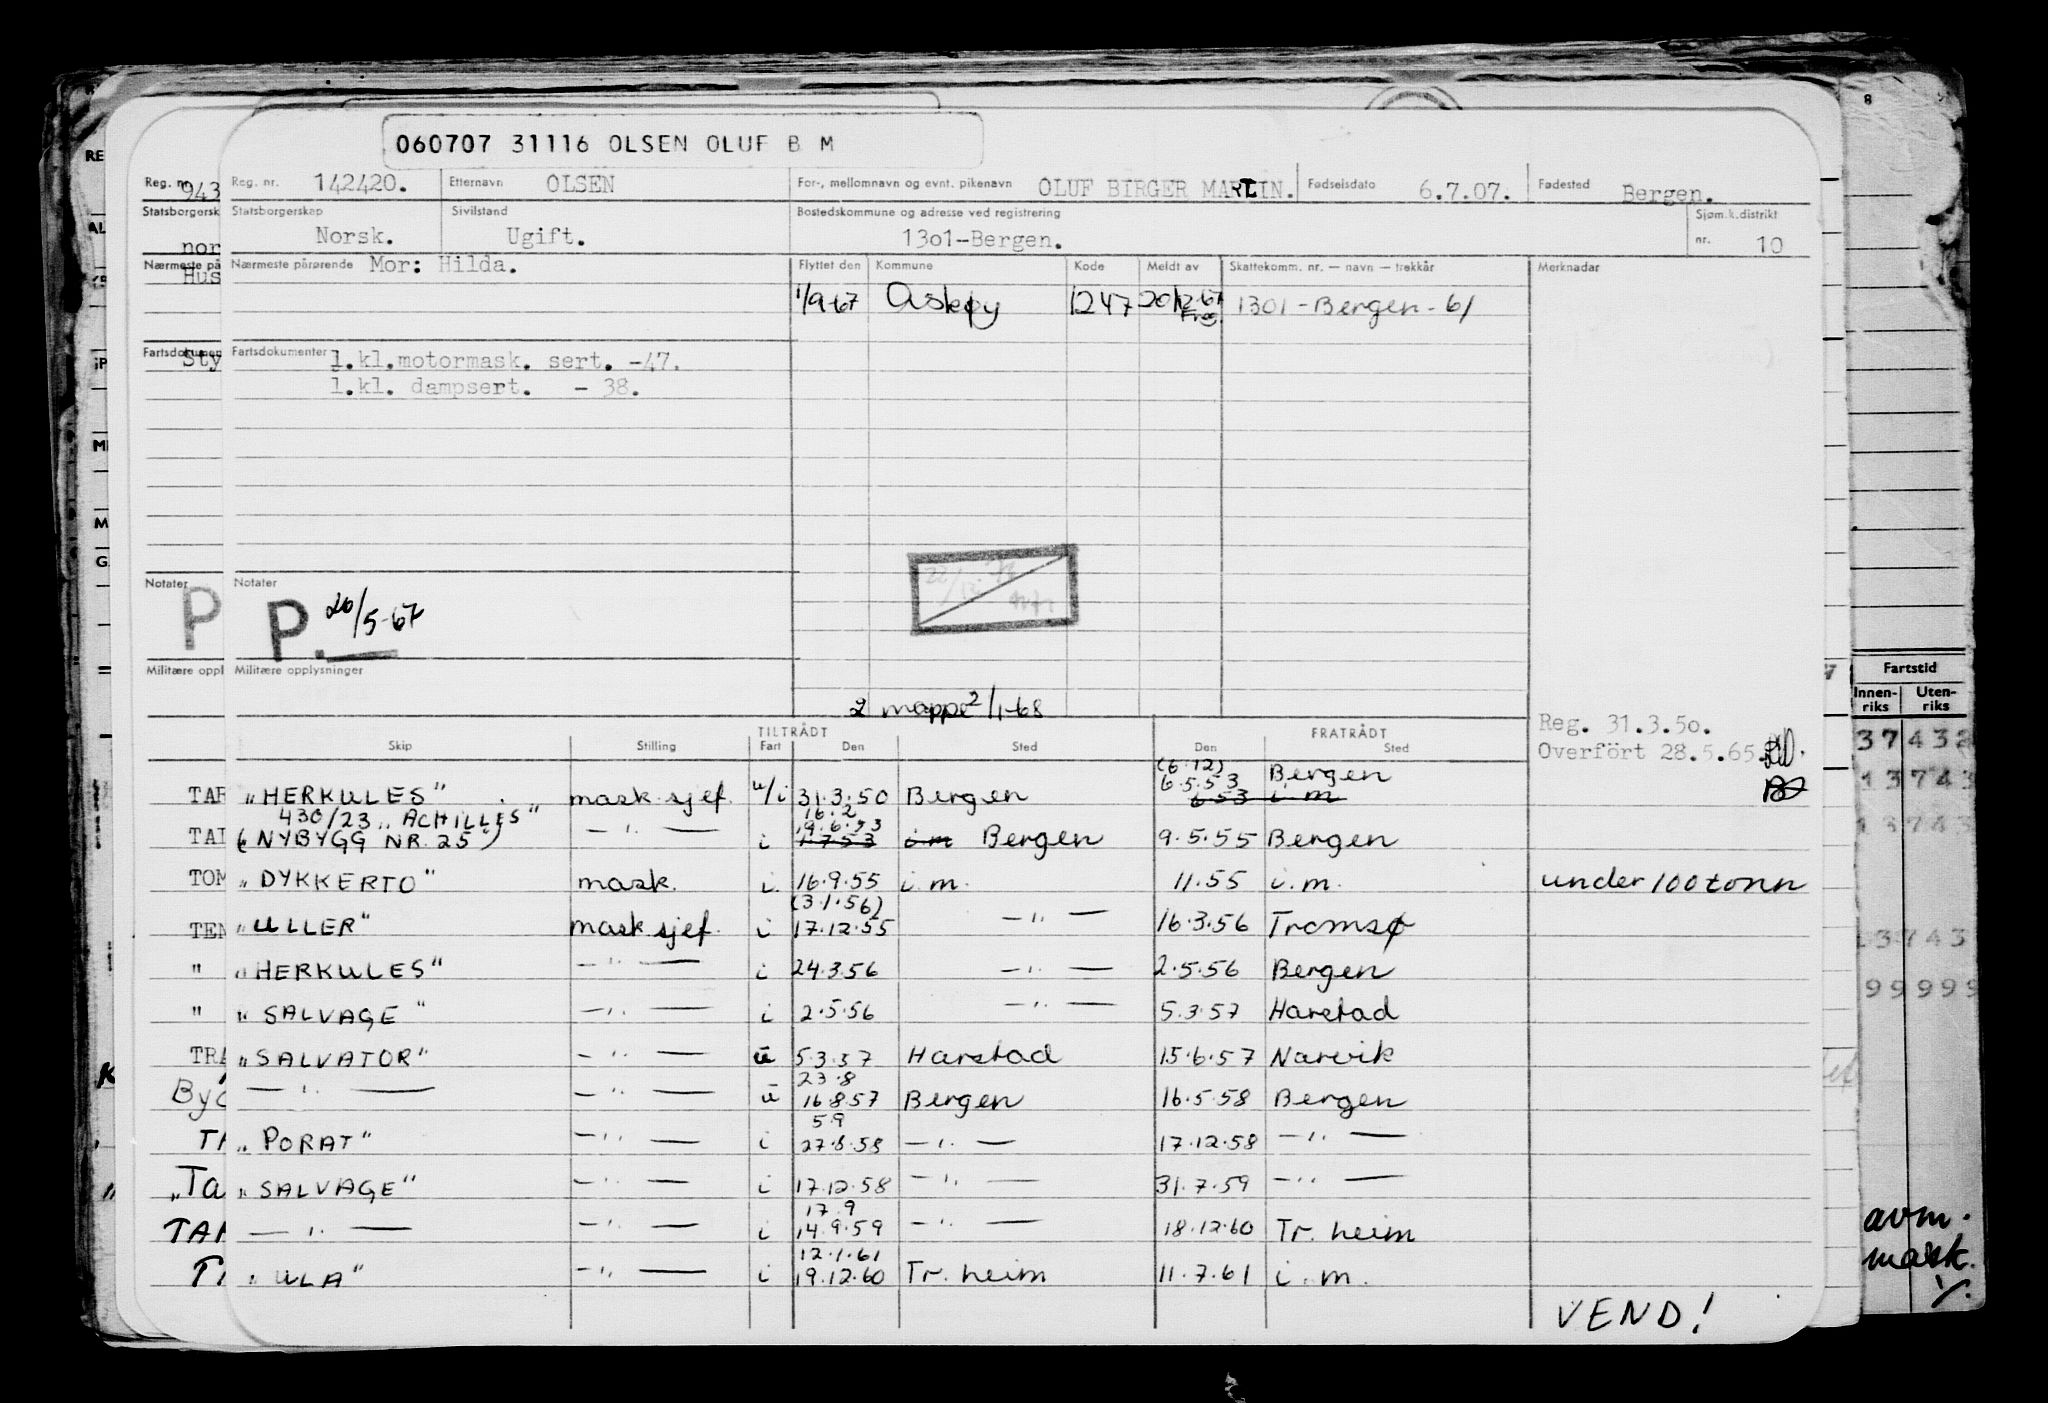 060707 31116 OLSEN OLUF B M
Reg. nr. 142420. Etternavn OLSEN For-, mellomnavn og evnt. pikenavn OLUF BIRGER MARTIN. Fødselsdato 6.7.07. Fødested Bergen.
Statsborgerskap Norsk. Sivilstand Ugift. Bostedskommune og adresse ved registrering 13o1-Bergen. Sjøm.k.distrikt nr. 10
Nærmeste pårørende Mor: Hilda. Flyttet den Kommune Kode Meldt av Skattekomm. nr. — navn — trekkår Merknadar
1/9-67 Askøy 1247 20/12-67 1301 - Bergen - 61
Fartsdokumenter 1.kl.motormask. sert. -47.
1.kl. dampsert. - 38.
Notater
P. 20/5-67
Militære opplysninger
2 mappe 2/1-68
Reg. 31.3.5o.
Overført 28.5.65.
TILTRÅDT FRATRÅDT
Skip Stilling Fart Den Sted Den Sted
(6.12)
"HERKULES" mask.sjef. u/i 31.3.50 Bergen 6.5.53 Bergen
6 53 i m
430/23 "ACHILLES" 16.2
(NYBYGG NR. 25") — " — i 19.6.53 1.7.53 i m Bergen 9.5.55 Bergen
"DYKKERTO" mask. i. 16.9.55 i.m. 11.55 i.m. under 100 tonn
(3.1.56)
"ULLER" mask sjef. i 17.12.55 — " — 16.3.56 Tromsø
"HERKULES" — " — i 24.3.56 — " — 2.5.56 Bergen
"SALVAGE" — " — i 2.5.56 — " — 5.3.57 Harstad
"SALVATOR" — " — u 5.3.57 Harstad 15.6.57 Narvik
23.8
— " — — " — u 16.8.57 Bergen 16.5.58 Bergen
5.9
"PORAT" — " — i 27.8.58 — " — 17.12.58 — " —
"SALVAGE" — " — i 17.12.58 — " — 31.7.59 — " —
17.9
— " — — " — i 14.9.59 — " — 18.12.60 Tr. heim
12.1.61
"ULA" — " — i 19.12.60 Tr. heim 11.7.61 i.m.
VEND!
Reg. nr. 943
Statsborgersk
nor
Nærmeste på
Hus
Fartsdokumen
Sty
Notater
P
Militære oppl
TAR
TAI
TOM
TEN
"
"
TRA
TA
"Ta
TAR
8
Fartstid
Innen-riks Uten-riks
37 432
13 743
13 743
13 743
99 999
avm.
mask.